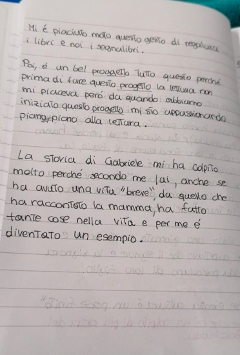 Mi è piaciuto molto questo gesto di regalarci
i libri e noi i segnalibri.
Poi, è un bel progetto tutto questo perché
prima di fare questo progetto la lettura non
mi piaceva però da quando abbiamo
iniziato questo progetto mi sto appassionando
piano piano alla lettura.
La storia di Gabriele mi ha colpito
molto perché secondo me lui, anche se
ha avuto una vita "breve", da quello che
ha raccontato la mamma, ha fatto
tante cose nella vita e per me é
diventato un esempio.